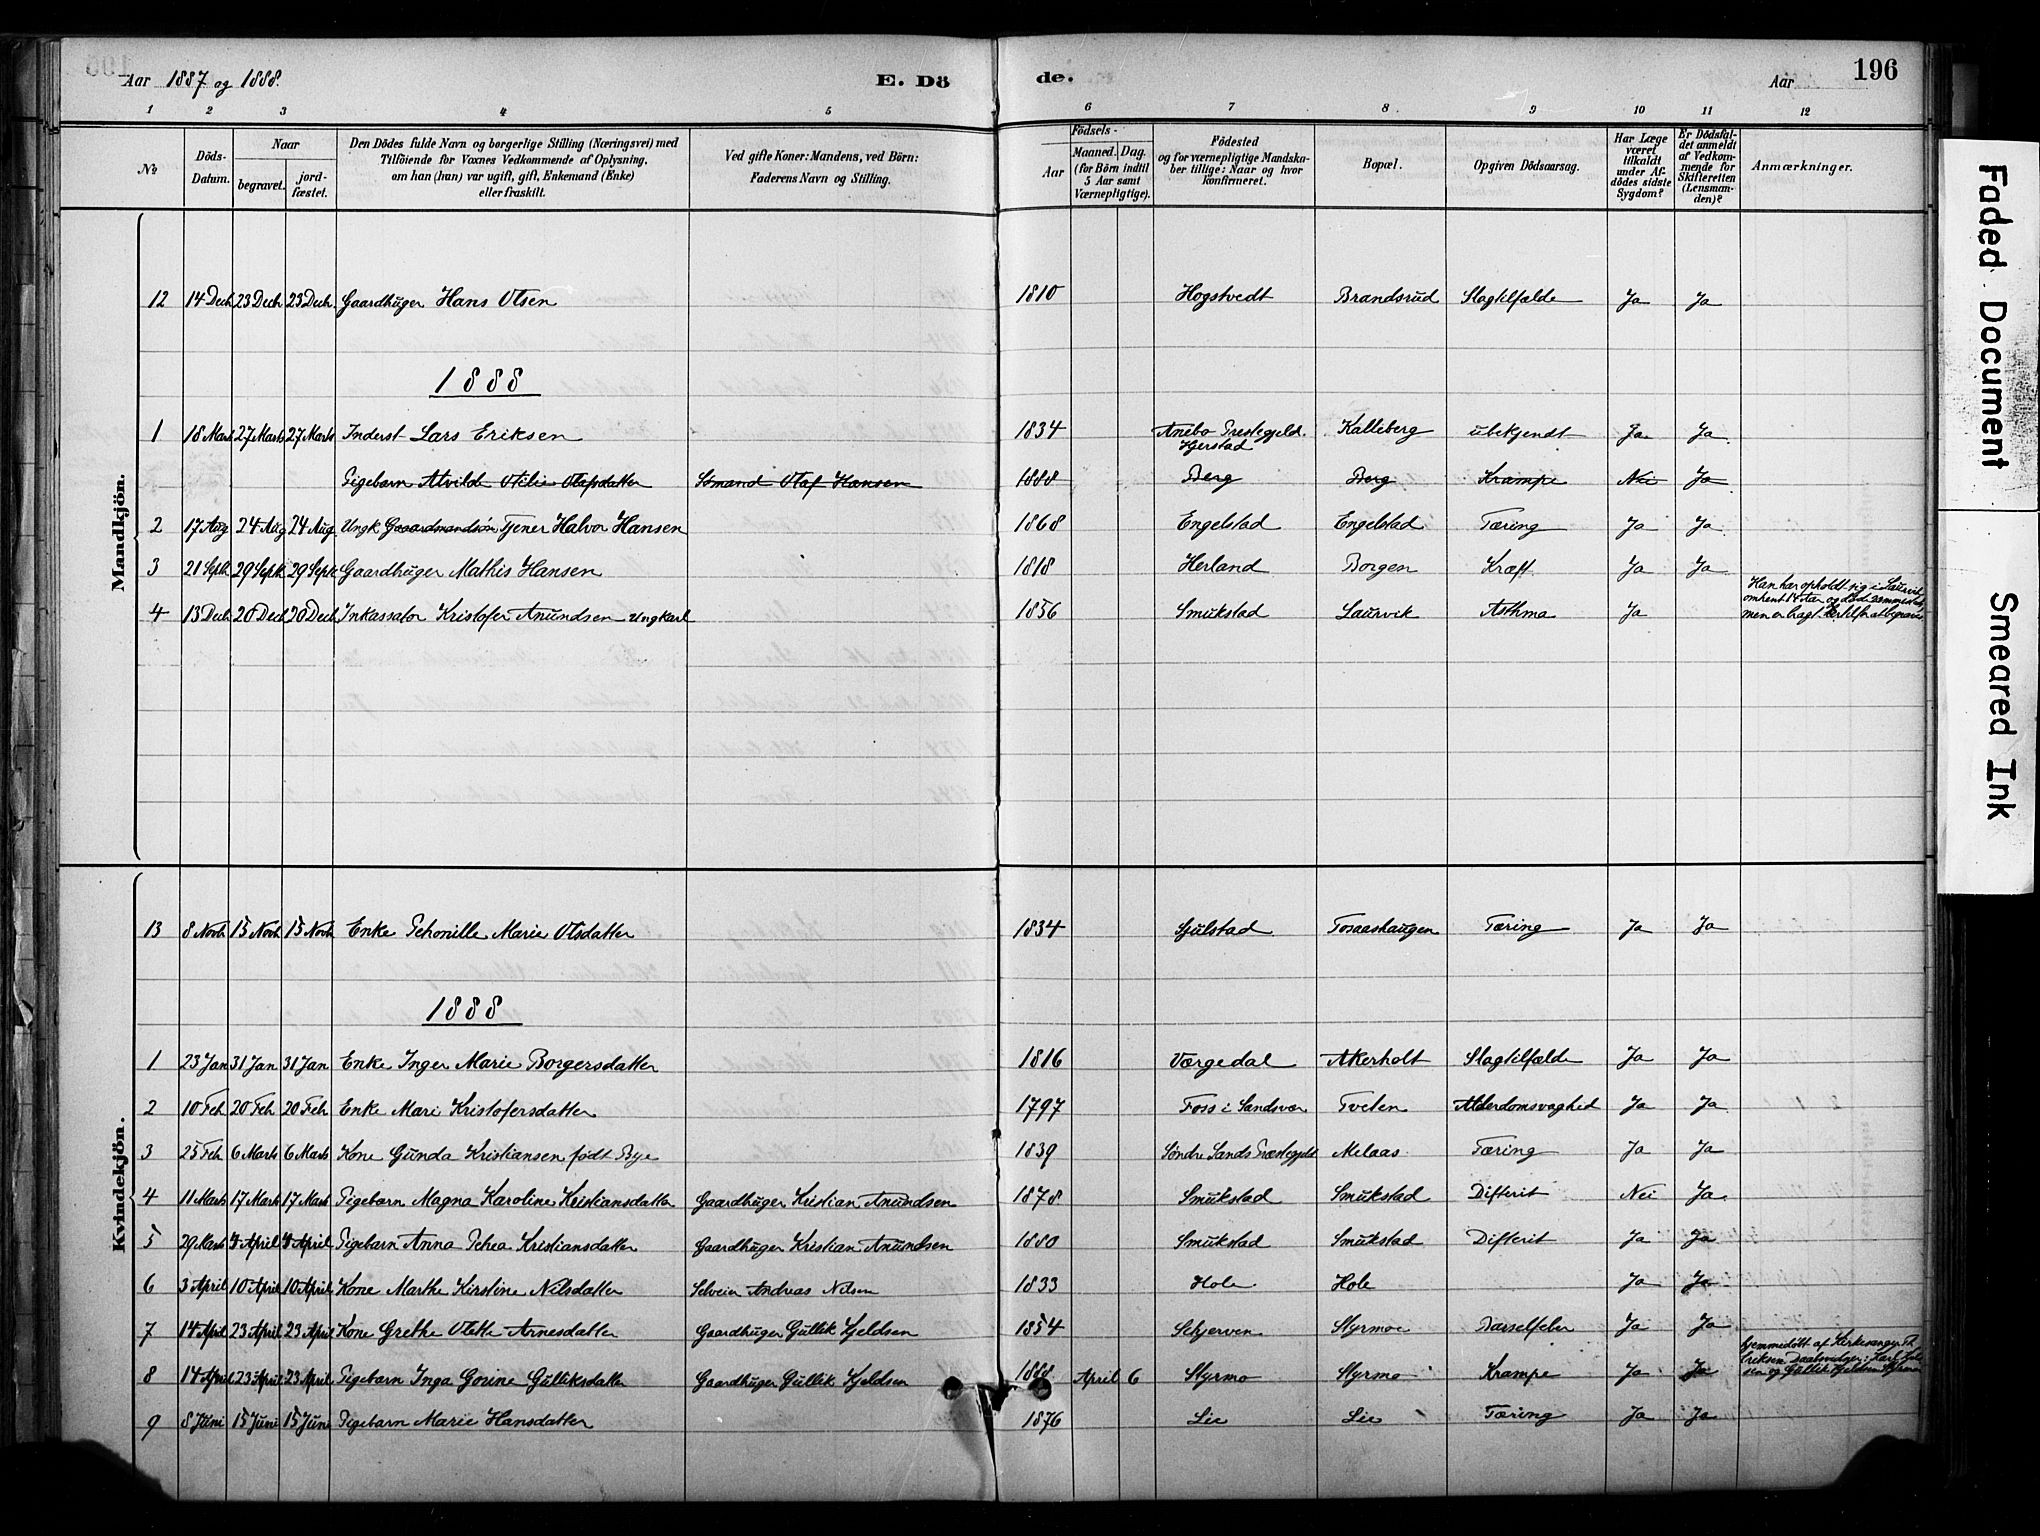 Aar 1887 og 1888. E. Dö de. Aar 196
1 2 3 4 5 6 7 8 9 10 11 12
No Döds-Datum. Naar begravet. jordfæstet. Den Dödes fulde Navn og borgerlige Stilling (Næringsvei) med Tilföiende for Voxnes Vedkommende af Oplysning, om han (hun) var ugift, gift, Enkemand (Enke) eller fraskilt. Ved gifte Koner: Mandens, ved Börn: Faderens Navn og Stilling. Födsels- Aar Maaned. Dag. (for Börn indtil 5 Aar samt Værnepligtige). Födested og for værnepligtige Mandskaber tillige: Naar og hvor konfirmeret. Bopæl. Opgiven Dödsaarsag. Har Læge været tilkaldt under Afdödes sidste Sygdom? Er Dödsfaldet anmeldt af Vedkommende for Skifteretten (Lensmanden)? Anmærkninger.
Mandkjön.
12 14 Decb. 23 Decb. 23 Decb. Gaardbruger Hans Olsen 1810 Hogstvedt Brandsrud Slagtilfælde Ja Ja
1888
1 18 Marts 27 Marts 27 Marts Inderst Lars Eriksen 1834 Anebo Prestegjeld. Kalleberg ubekjendt Ja Ja
Hjerstad
Pigebarn Alvilde Otilie Olafsdatter Smand Olaf Hansen 1888 Berg Berg Krampe Nei Ja
2 17 Aug 24 Aug 24 Aug Ungk Gaardmandsøn Tjener Halvor Hansen 1868 Engelstad Engelstad Tæring Ja Ja
3 21 Septb 29 Septb 29 Septb Gaardbruger Mathis Hansen 1818 Herland Borgen Kræft Ja Ja
4 13 Decb. 20 Decb 20 Decb. Inkassator Kristofer Anundsen Ungkarl 1856 Smukstad Laurvik Asthma Ja
Han har opholdt sig i Laurvik
omtrent 14 Aar og død sammesteds,
men er bragt hertil for at begraves
Kvindekjön.
13 8 Novb 15 Novb 15 Novb Enke Pehonille Marie Olsdatter 1834 Sjulstad Fosaashaugen Tæring Ja Ja
1888
1 23 Jan 31 Jan 31 Jan Enke Inger Marie Borgersdatter 1816 Værgedal Akerholt Slagtilfælde Ja Ja
2 10 Feb 20 Feb 20 Feb Enke Mari Kristofersdatter 1797 Foss i Sandsvær Tveten Alderdomsvaghed Ja Ja
3 25 Feb 6 Marts 6 Marts Kone Gunda Kristiansen født Bye 1839 Søndre Lands Præstegjeld Melaas Tæring Ja Ja
4 11 Marts 17 Marts 17 Marts Pigebarn Magna Karoline Kristiansdatter Gaardbruger Kristian Anundsen 1878 Smukstad Smukstad Difterit Nei Ja
5 29 Marts 4 April 4 April Pigebarn Anna Petrea Kristiansdatter Gaardbruger Kristian Anundsen 1880 Smukstad Smukstad Difterit Ja Ja
6 3 April 10 April 10 April Kone Marthe Kirstine Nilsdatter Selveier Andreas Nilsen 1833 Hole Hole Ja Ja
7 14 April 23 April 23 April Kone Grethe Olette Arnesdatter Gaardbruger Gullik Kjeldsen 1854 Skjerven Styrmoe Barselfeber Ja Ja
8 14 April 23 April 23 April Pigebarn Inga Gorine Gulliksdatter Gaardbruger Gullik Kjeldsen 1888 April 6 Styrmo Styrmo Krampe Ja Ja
hjemmedøbt af Kirkesanger
Eriksen Daabsvidner:
og Gullik Kjeldsen
9 8 Juni 15 Juni 15 Juni Pigebarn Marie Hansdatter 1876 Lie Lie Tæring Ja Ja
Faded Document
Smeared Ink